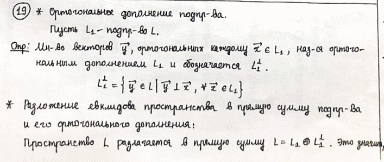 (19) * Ортогональное дополнение подпр-ва.
Пусть L₁ - подпр-во L.
Опр: Мн-во векторов y⃗, ортогональных каждому x⃗ ∈ L₁, наз-ся ортого-
нальным дополнением L₁ и обозначается L₁^⊥.
L₁^⊥ = { y⃗ ∈ L | y⃗ ⊥ x⃗, ∀ x⃗ ∈ L₁ }
* Разложение евклидова пространства в прямую сумму подпр-ва
и его ортогонального дополнения:
Пространство L разлагается в прямую сумму L = L₁ ⊕ L₁^⊥. Это значит,